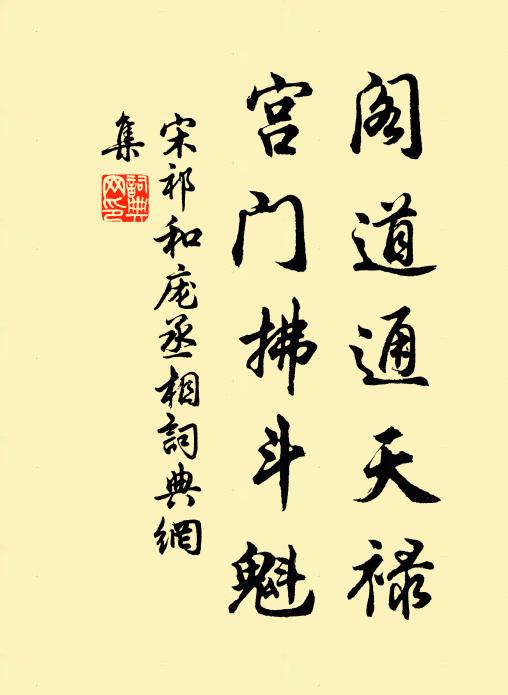 阁道通天禄
宫门拂斗魁
宋祁和庞丞相詞典網
集
詞典
网印